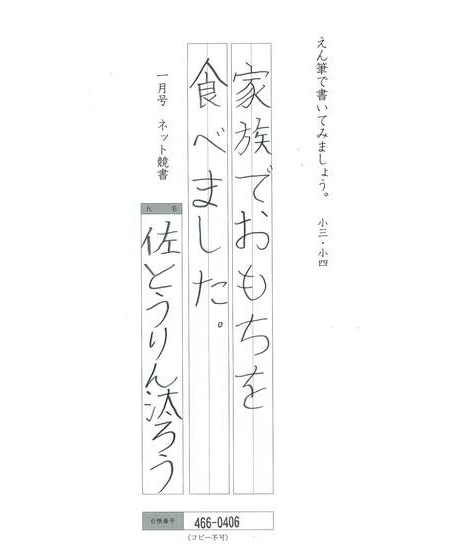 えん筆で書いてみましょう。 小三・小四
家族でおもちを
食べました。
一月号 ネット競書
氏名
佐とうりん汰ろう
466-0406
(コピー不可)